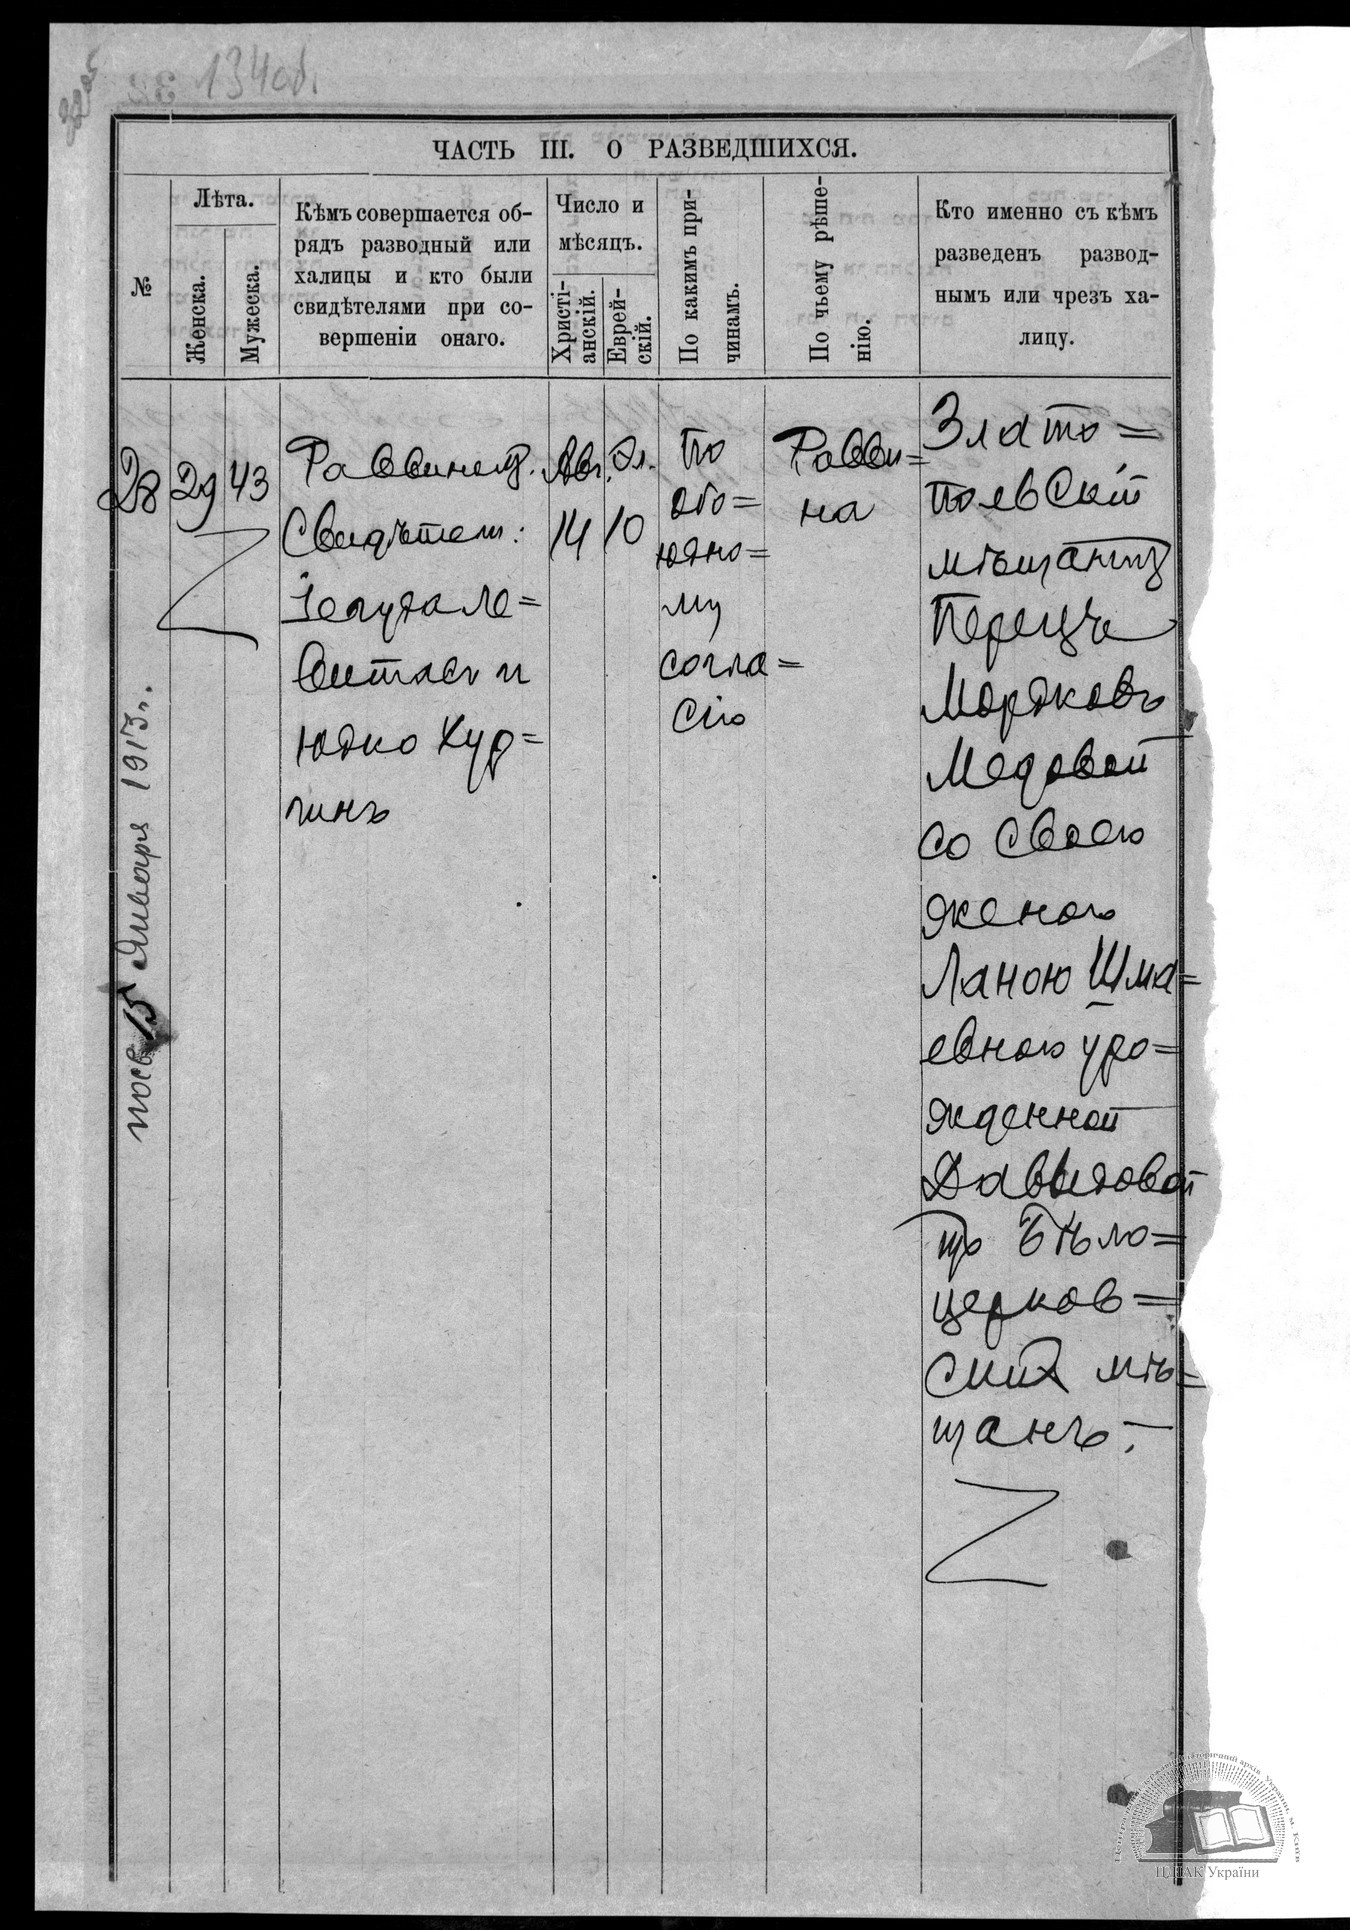 134об.
ЧАСТЬ III. О РАЗВЕДШИХСЯ.
№
Лѣта.
Женска.
Мужеска.
Кѣмъ совершается об-
рядъ разводный или
халицы и кто были
свидѣтелями при со-
вершеніи онаго.
Число и
мѣсяцъ.
Христі-
анскій.
Еврей-
скій.
По какимъ при-
чинамъ.
По чьему рѣше-
нію.
Кто именно съ кѣмъ
разведенъ развод-
нымъ или чрезъ ха-
лицу.
28
29
43
Раввиномъ.
Свидѣтели:
Іегуда Ле=
витасъ и
Юдко Хур=
гинъ
Авг.
14
Эл.
10
По
обо=
юдно=
му
согла=
сію
Равви=
на
Злато=
польскій
мѣщанинъ
Перецъ
Мордковъ
Медовой
со своею
женою
Ханою Шма=
евною уро=
жденной
Давыдовой
Бѣло=
церков=
скихъ мѣ=
щанъ.
15 Января 1913 г.
ЦДІАК України